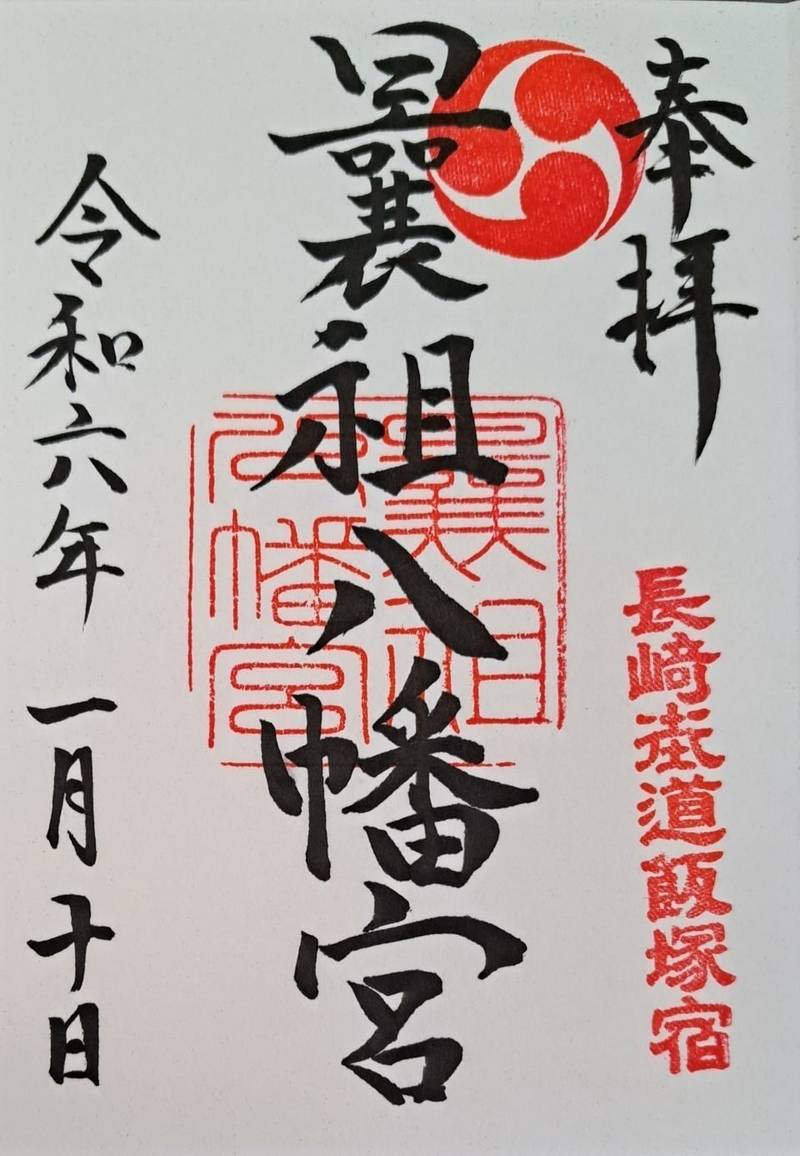 奉拝
長崎街道飯塚宿
曩祖八幡宮
曩祖
八幡宮
令和六年一月十日